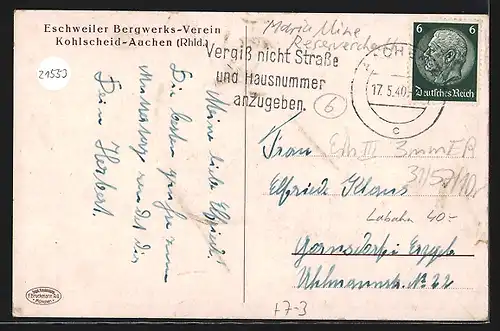 Eschweiler Bergwerks-Verein
Kohlscheid-Aachen (Rhld.)
21533
Maria Mine
Reserveschacht
Vergiß nicht Straße
und Hausnummer
anzugeben.
17.5.40
c
6 6
Deutsches Reich
6
Meine liebe Elfriede!
Die besten Grüße zum
sendet dir
Dein Herbert.
Frau
Elfriede Klaus
Labahn 40-
Gornsdorf i. Erzgb.
Uhlmannstr. No 22
F. Bruckmann A.G.
München
17-3